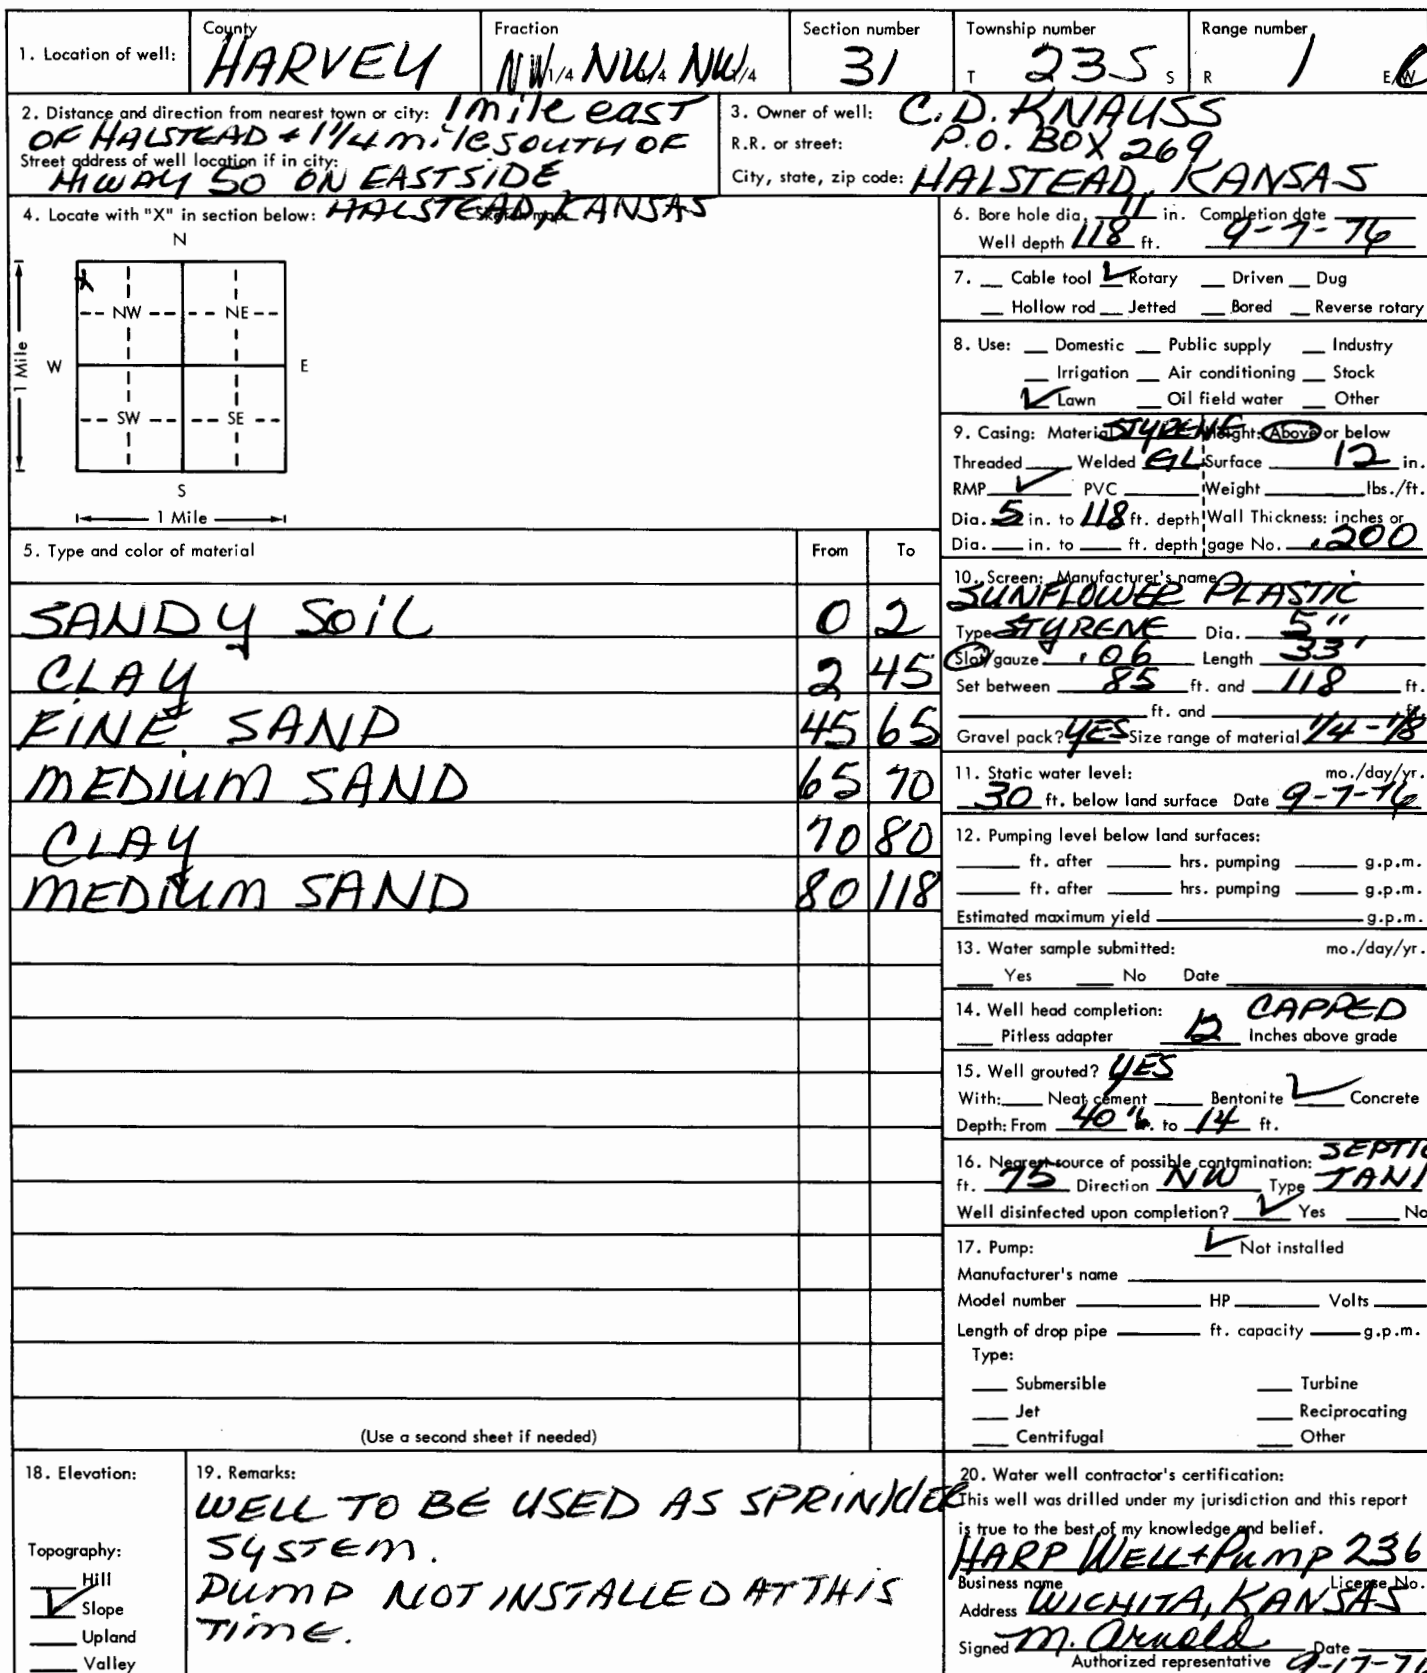 1. Location of well: County HARVEY Fraction NW 1/4 NW 1/4 NW 1/4 Section number 31 Township number T 23S S Range number R 1 E/W
2. Distance and direction from nearest town or city: 1 mile east
OF HALSTEAD + 1 1/4 mile SOUTH OF
Street address of well location if in city:
HIWAY 50 ON EASTSIDE
3. Owner of well: C.D. KNAUSS
R.R. or street: P.O. BOX 269
City, state, zip code: HALSTEAD, KANSAS
4. Locate with "X" in section below: HALSTEAD, KANSAS
N
X
NW NE
W E
1 Mile
SW SE
S
1 Mile
5. Type and color of material From To
SANDY SOIL 0 2
CLAY 2 45
FINE SAND 45 65
MEDIUM SAND 65 70
CLAY 70 80
MEDIUM SAND 80 118
(Use a second sheet if needed)
6. Bore hole dia. 11 in. Completion date
Well depth 118 ft. 9-7-76
7. Cable tool ✓ Rotary Driven Dug
Hollow rod Jetted Bored Reverse rotary
8. Use: Domestic Public supply Industry
Irrigation Air conditioning Stock
✓ Lawn Oil field water Other
9. Casing: Material STYRENE Height: Above or below
Threaded Welded GL Surface 12 in.
RMP ✓ PVC Weight lbs./ft.
Dia. 5 in. to 118 ft. depth Wall Thickness: inches or
Dia. in. to ft. depth gage No. .200
10. Screen: Manufacturer's name
SUNFLOWER PLASTIC
Type STYRENE Dia. 5"
Slot/gauze .06 Length 33'
Set between 85 ft. and 118 ft.
ft. and ft.
Gravel pack? YES Size range of material 1/4 - 1/8
11. Static water level: mo./day/yr.
30 ft. below land surface Date 9-7-76
12. Pumping level below land surfaces:
ft. after hrs. pumping g.p.m.
ft. after hrs. pumping g.p.m.
Estimated maximum yield g.p.m.
13. Water sample submitted: mo./day/yr.
Yes No Date
14. Well head completion: CAPPED
Pitless adapter 12 Inches above grade
15. Well grouted? YES
With: Neat cement Bentonite ✓ Concrete
Depth: From 40" to 14 ft.
16. Nearest source of possible contamination: SEPTIC
ft. 75 Direction NW Type TAN
Well disinfected upon completion? ✓ Yes No
17. Pump: ✓ Not installed
Manufacturer's name
Model number HP Volts
Length of drop pipe ft. capacity g.p.m.
Type:
Submersible Turbine
Jet Reciprocating
Centrifugal Other
18. Elevation:
Topography:
Hill
✓ Slope
Upland
Valley
19. Remarks:
WELL TO BE USED AS SPRINKLER
SYSTEM.
PUMP NOT INSTALLED AT THIS
TIME.
20. Water well contractor's certification:
This well was drilled under my jurisdiction and this report
is true to the best of my knowledge and belief.
HARP WELL + PUMP 236
Business name License No.
Address WICHITA, KANSAS
Signed M. Arnold Date 9-17-76
Authorized representative